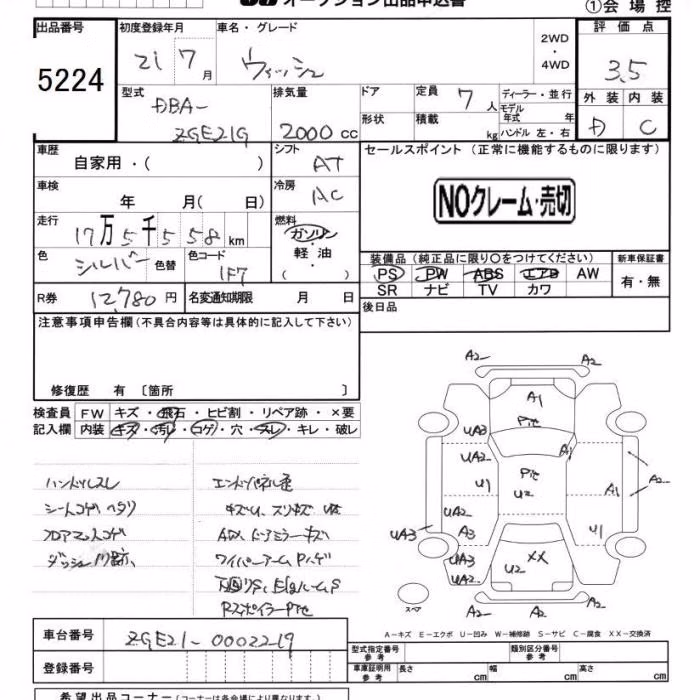 オークション出品申込書
①会場控
出品番号 初度登録年月 車名・グレード 評価点
5224 21 7月 ウィッシュ 2WD・4WD 3.5
型式 DBA- ZGE21G
排気量 2000cc
ドア 定員 7人 ディーラー・並行
形状 積載 kg モデル年式 年
ハンドル 左・右
外装 内装
D C
車歴 自家用・( )
シフト AT
セールスポイント (正常に機能するものに限ります)
車検 年 月( 日)
冷房 AC
NOクレーム・売切
走行 17万5千558km
燃料 ガソリン・軽油・( )
色 シルバー 色替 色コード 1F7
装備品 (純正品に限り〇をつけてください) 新車保証書
PS PW ABS エアB AW 有・無
SR ナビ TV カワ
R券 12,780円 名変通知期限 月 日
後日品
注意事項申告欄 (不具合内容等は具体的に記入して下さい)
修復歴 有 〔箇所 〕
検査員 FW キズ・飛石・ヒビ割・リペア跡・×要
記入欄 内装 キズ・汚レ・コゲ・穴・スレ・キレ・破レ
ハンドルスレ
シートコゲ ヘタリ
フロアマットコゲ
ワイパーアームPハゲ
A2 A2
A1
Pite
UA3
UA2 A1
Pite
U1 U2 A1 A2
UA2
UA3 A3 U1
UA3 XX
UA2 U2
A2 A2
スペア
車台番号 ZGE21-0002219
A-キズ E-エクボ U-凹み W-補修跡 S-サビ C-腐食 XX-交換済
登録番号
型式指定番号 参考 類別区分番号 参考
車庫証明用 参考 長さ cm 幅 cm 高さ cm
希望出品コーナー (コーナーは各会場により異なります。)